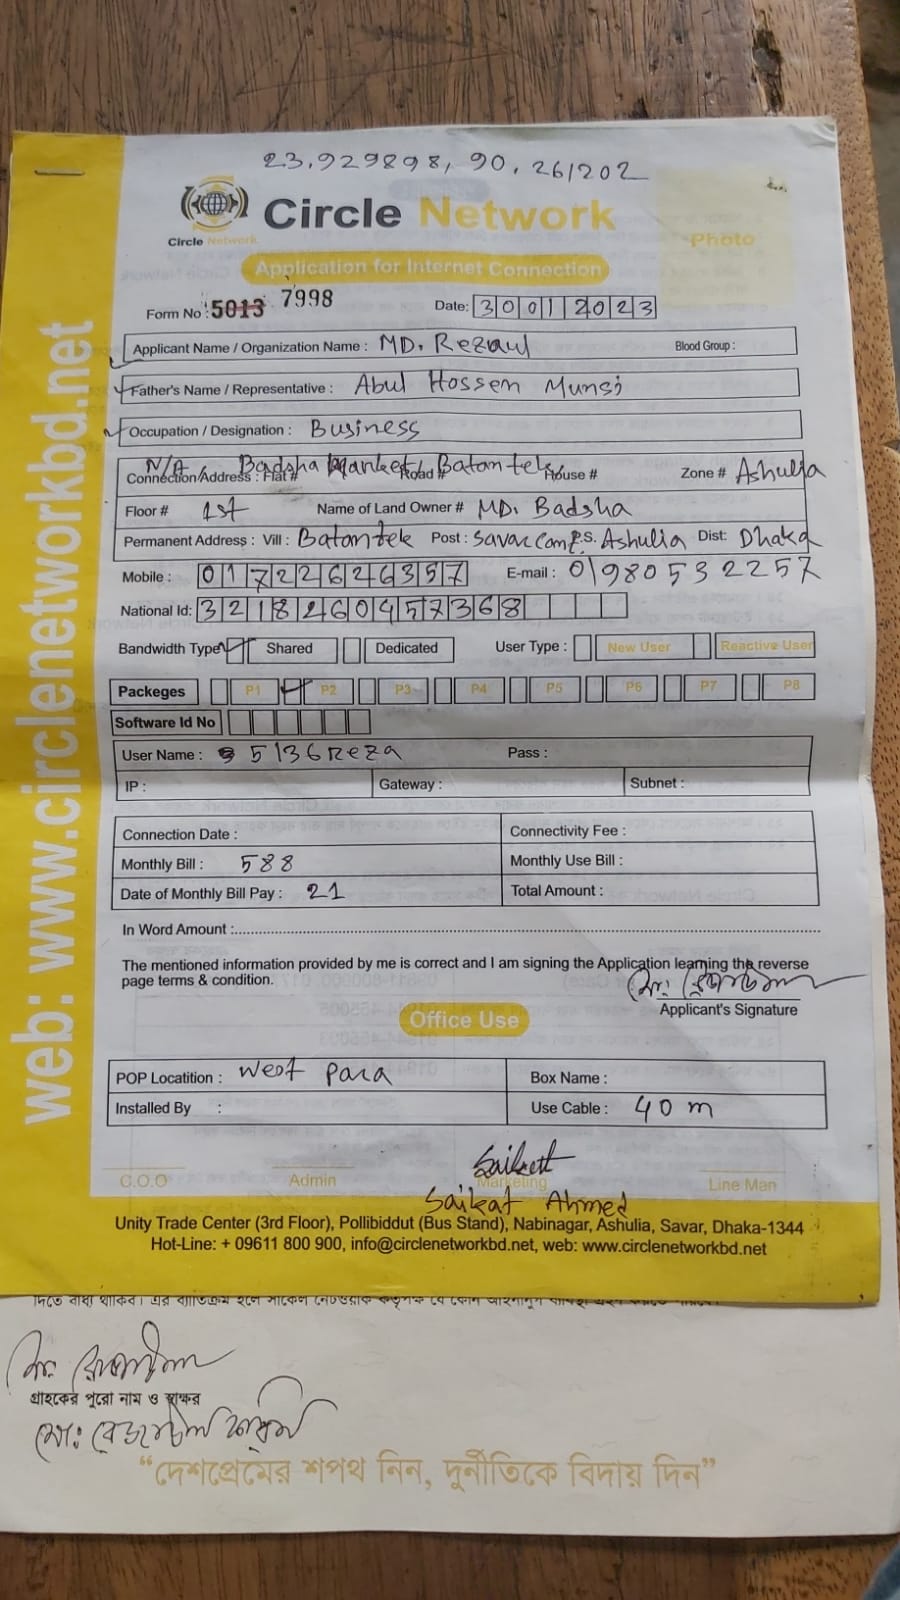 23.929898, 90.261202
Circle Network
Circle Network
Photo
Application for Internet Connection
Form No : 5013 7998 Date: 30012023
Applicant Name / Organization Name : MD. Rezaul Blood Group :
Father's Name / Representative : Abul Hossen Munsi
Occupation / Designation : Business
N/A Badsha Market Batamtek
Connection/Address : Flat # Road # House # Zone # Ashulia
Floor # 1st Name of Land Owner # MD. Badsha
Permanent Address : Vill : Batamtek Post : Savar Camp P.S. Ashulia Dist: Dhaka
Mobile : 01722626357 E-mail : 01980532257
National Id: 3218260457368
Bandwidth Type Shared Dedicated User Type : New User Reactive User
Packeges P1 P2 P3 P4 P5 P6 P7 P8
Software Id No
User Name : 5136Reza Pass :
IP : Gateway : Subnet :
Connection Date : Connectivity Fee :
Monthly Bill : 588 Monthly Use Bill :
Date of Monthly Bill Pay : 21 Total Amount :
In Word Amount :
The mentioned information provided by me is correct and I am signing the Application learning the reverse
page terms & condition.
Applicant's Signature
Office Use
POP Locatition : West Para Box Name :
Installed By : Use Cable : 40 m
Saikat
C.O.O Admin Marketing Line Man
Saikat Ahmed
Unity Trade Center (3rd Floor), Pollibiddut (Bus Stand), Nabinagar, Ashulia, Savar, Dhaka-1344
Hot-Line: + 09611 800 900, info@circlenetworkbd.net, web: www.circlenetworkbd.net
web: www.circlenetworkbd.net
গ্রাহকের পুরো নাম ও স্বাক্ষর
“দেশপ্রেমের শপথ নিন, দুর্নীতিকে বিদায় দিন”